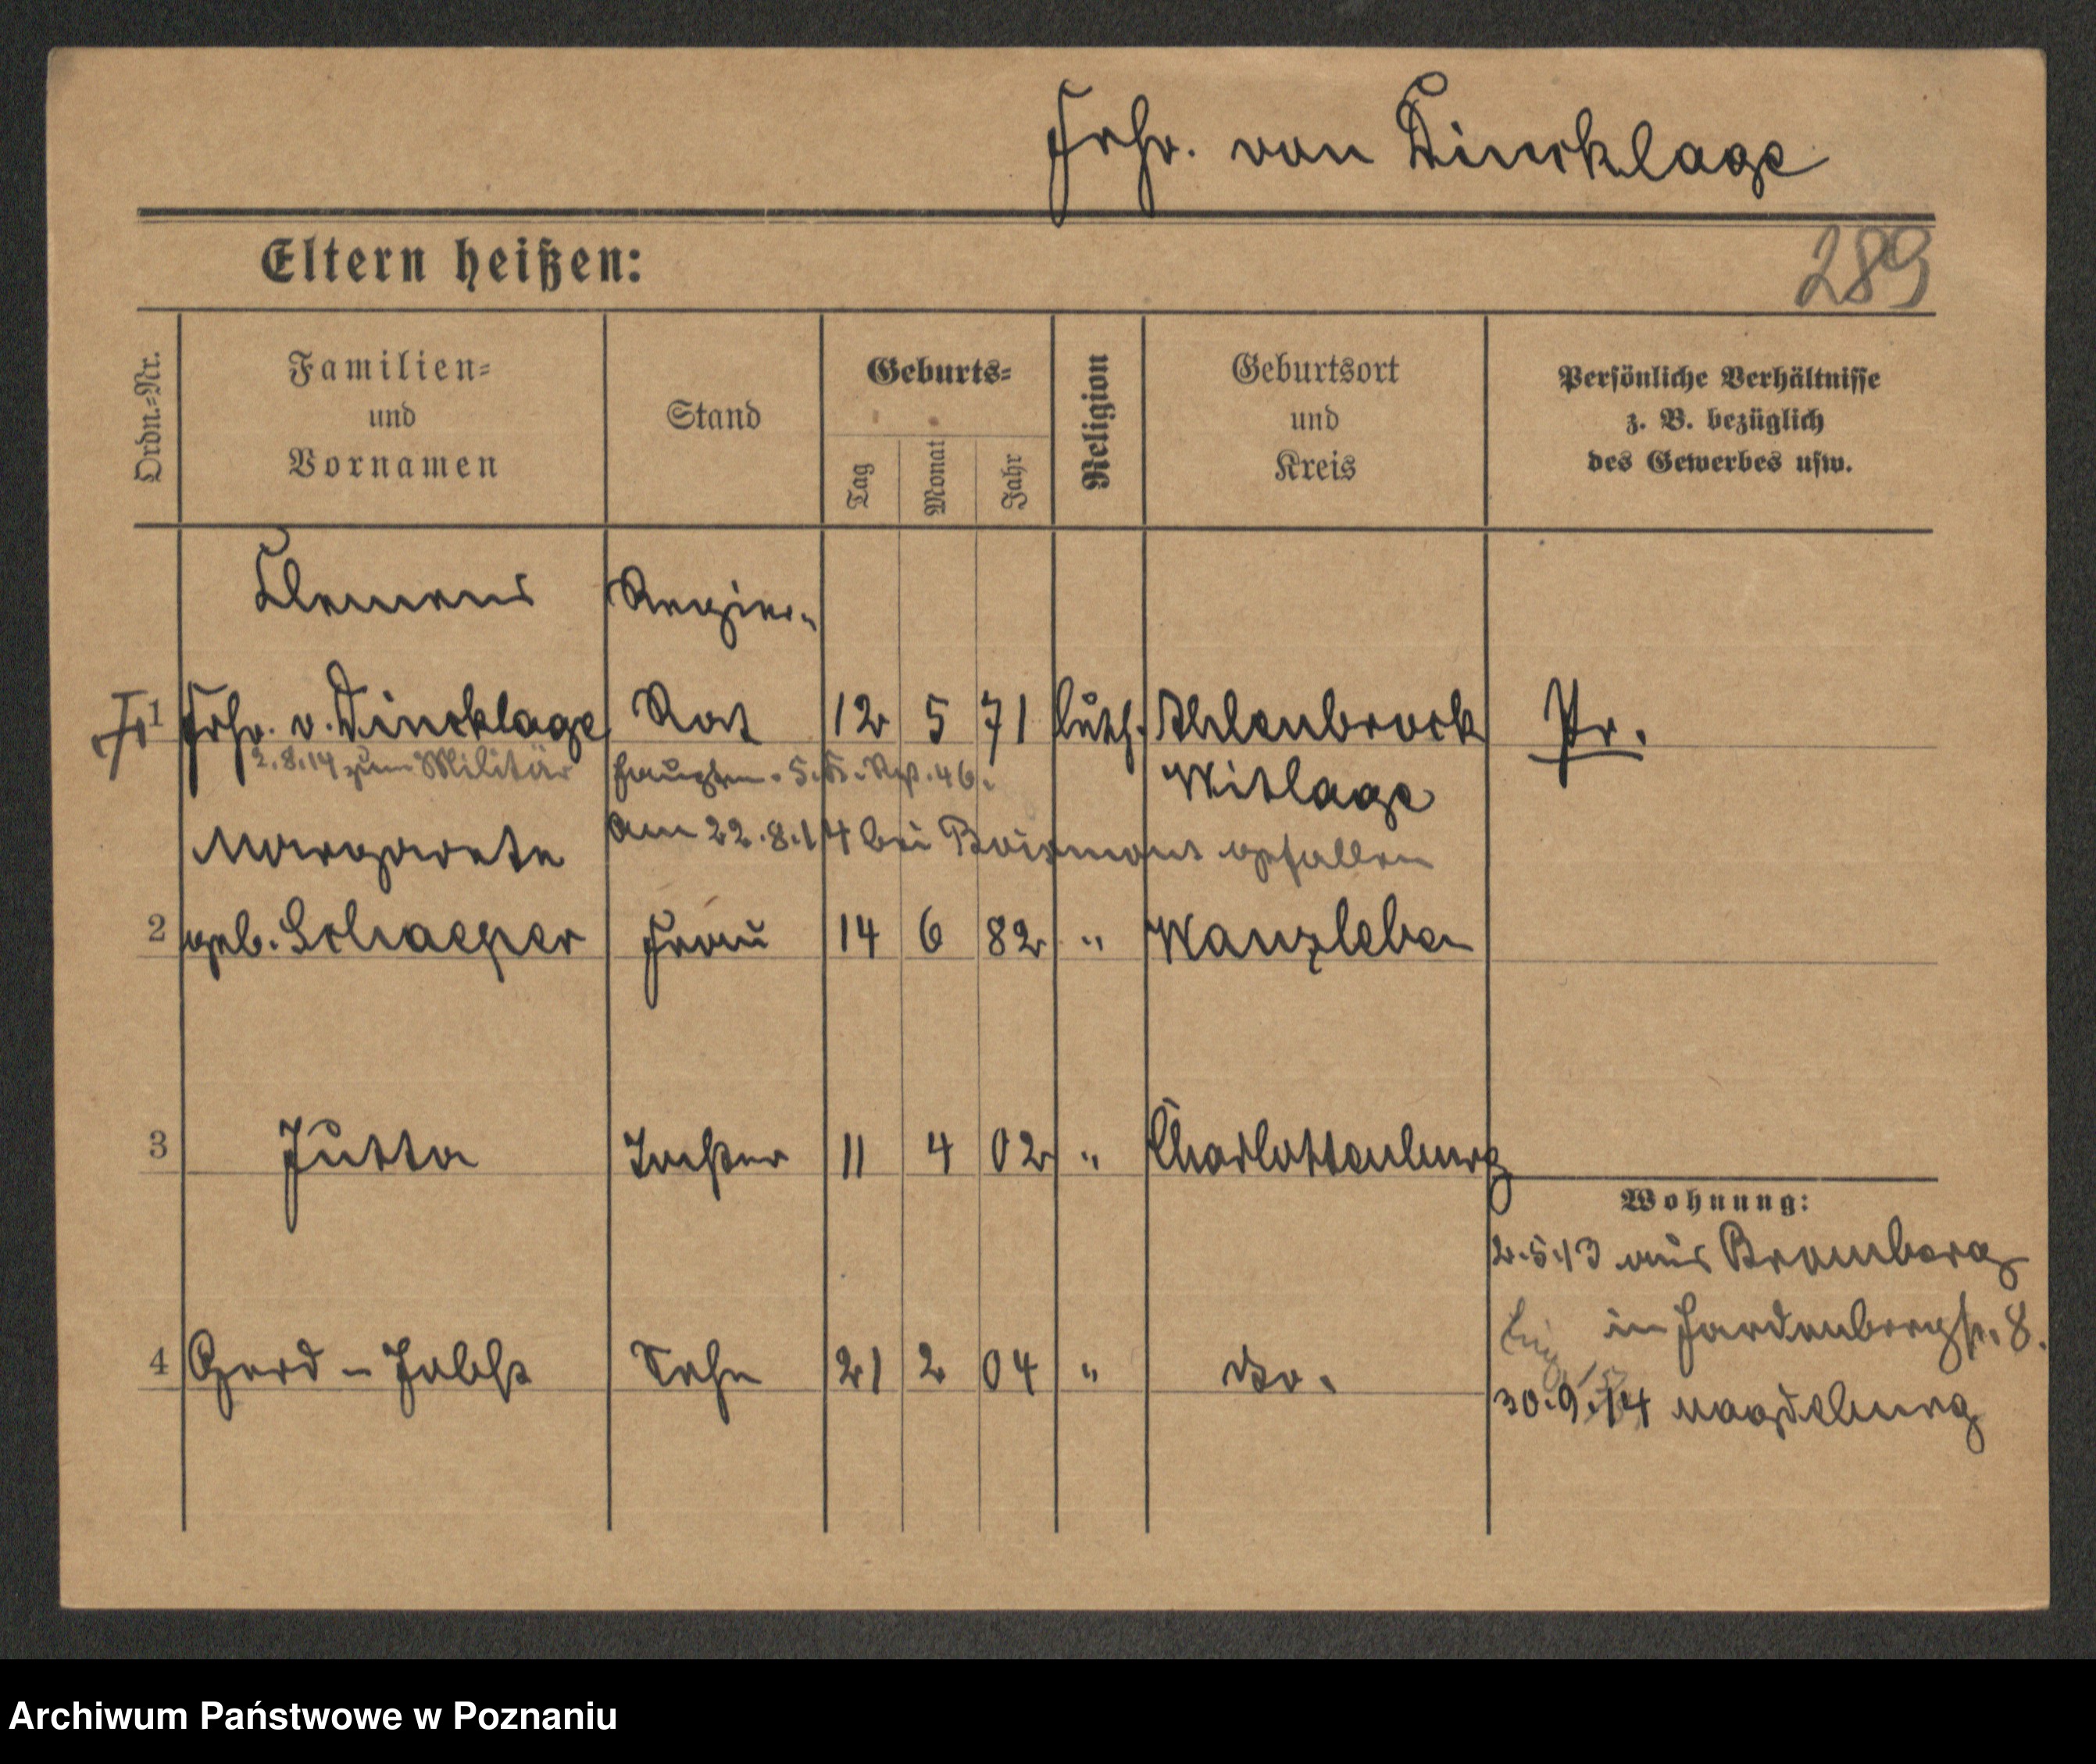 Frhr. von Dincklage
Eltern heißen:
289
Ordn.-Nr.
Familien-
und
Vornamen
Stand
Geburts-
Tag
Monat
Jahr
Religion
Geburtsort
und
Kreis
Persönliche Verhältnisse
z. B. bezüglich
des Gewerbes usw.
Clemens Regier.
1 Frhr. v. Dincklage Rat 12 5 71 luth. Ahlenbrock Pr.
2.8.14 zum Militär Hauptm. 5. K. Rgt. 46. Witlage
am 22.8.14 bei Boismont gefallen
Margarete
2 geb. Schaeper Frau 14 6 82 " Wanzleben
3 Jutta Tochter 11 4 02 " Charlottenburg
Wohnung:
2.5.13 aus Bromberg
in Hardenbergstr. 8.
4 Gerd - Jobst Sohn 21 2 04 " do.
30.9.14 Magdeburg
Archiwum Państwowe w Poznaniu